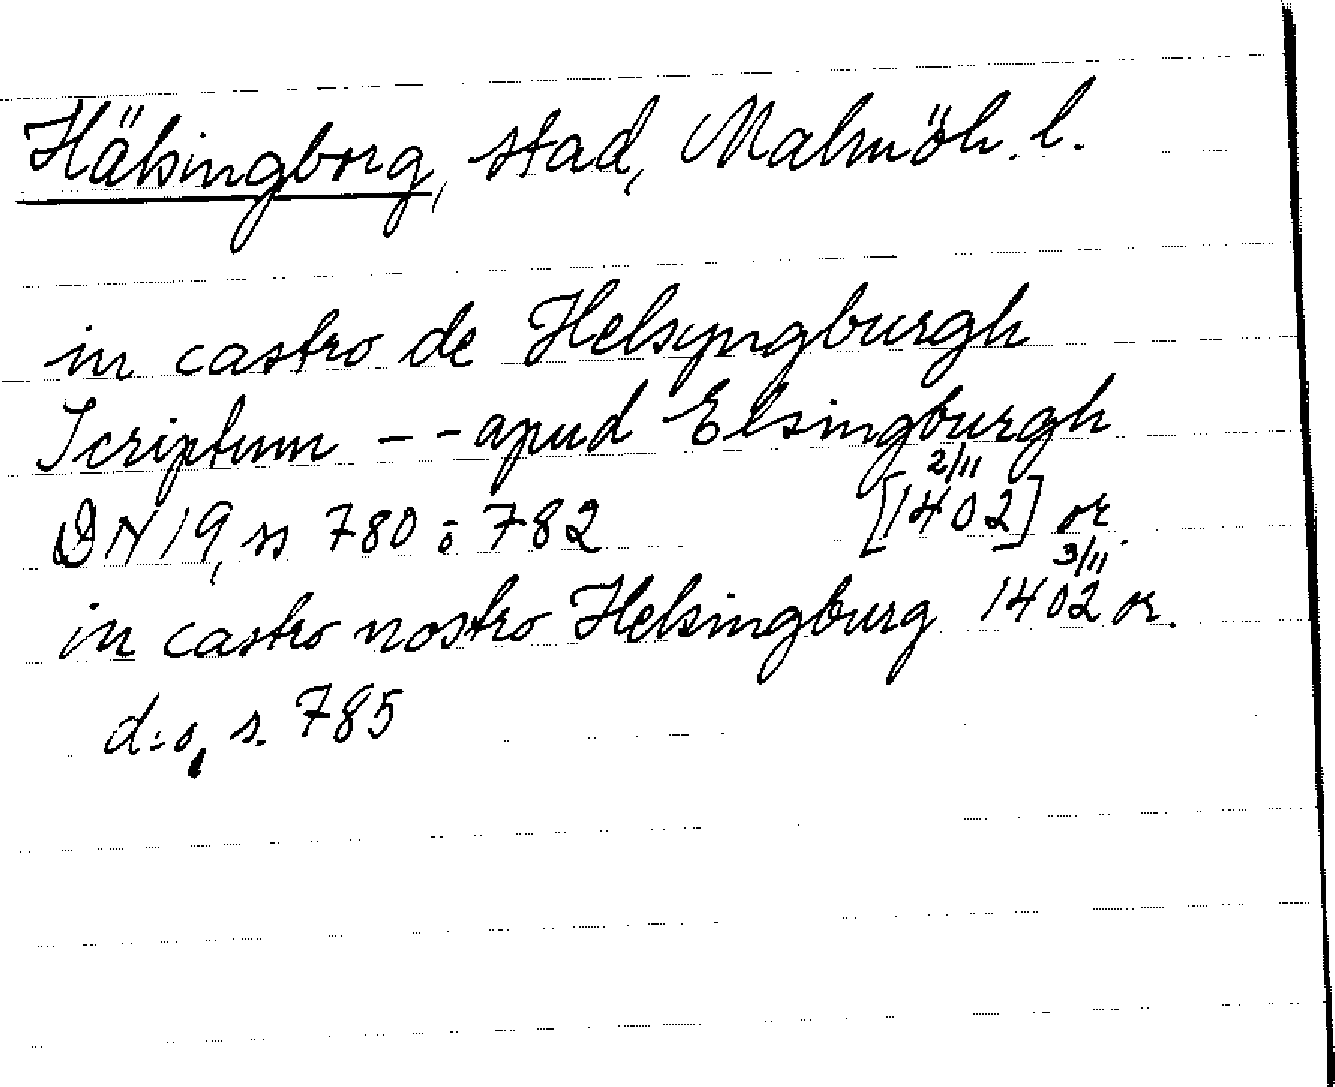 Hälsingborg, stad, Malmöh. l.
in castro de Helsyngburgh
Scriptum - - apud Elsingburgh
DN 19, ss 780 o 782 [1402] 2/11 or.
in castro nostro Helsingburg 1402 3/11 or.
d:o, s. 785